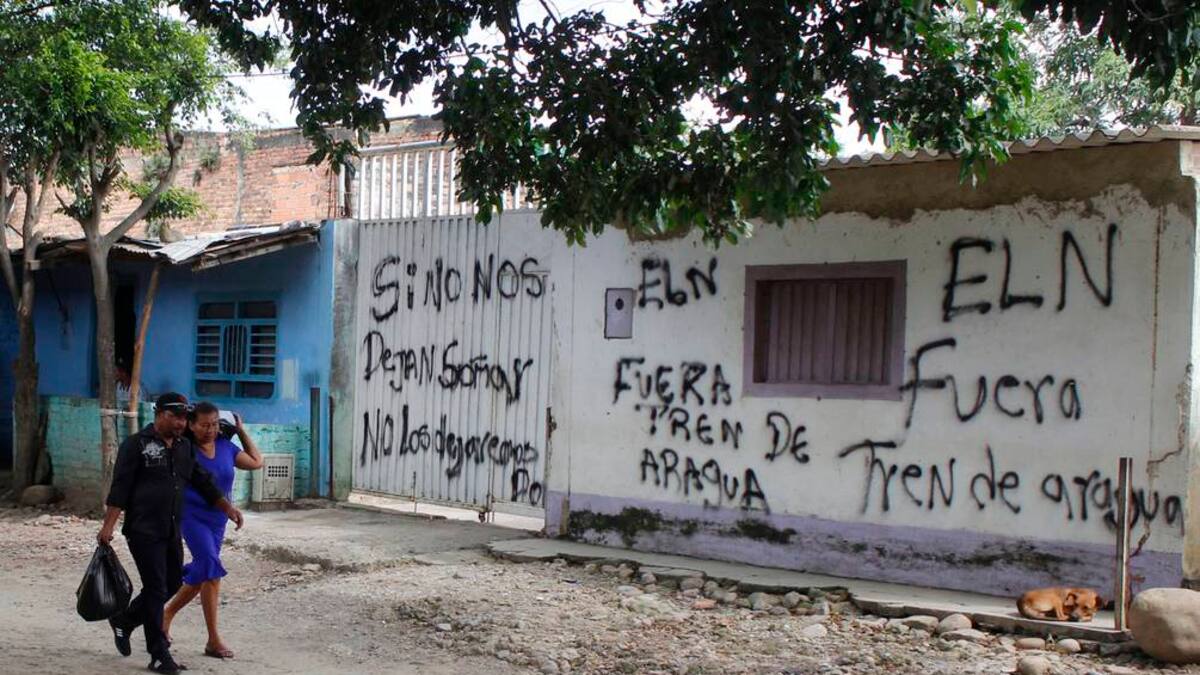 SiNO NOS
Dejan Soñar
NO Los dejaremos
Do
ELN
FUERA
TREN DE
ARAGUA
ELN
Fuera
Tren de aragua